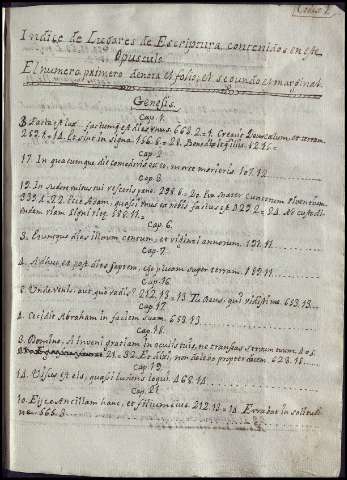 Indice de Lugares de Escriptura, contenidos en este
Opusculo
El numero primero denota el folio, et segundo et marginal
Genesis.
Cap. 1.
3. Facta est lux. factumq est dies unus 668.2=1. Creavit Deus cælum, et terram.
14. Et sint in signa. 28. Benedixitq illis. 1216=
Cap. 2.
17. In quacumque die comederis ex eo, morte morieris. 107.12
Cap. 3.
19. In sudore vultus tui vesceris pane. 20. Eva mater cunctorum viventium.
22. Ecce Adam, quasi unus ex nobis factus est 24. custodi
endam viam ligni
Cap. 6.
3. Eruntque dies illius centum, et viginti annorum. 131.11
Cap. 7.
4. Adhuc, et post dies septem, ego pluam super terram. 189.11
Cap. 16.
Unde venis, aut quo vadis? 212.13=13. Tu Deus, qui vidisti me. 653.13
Cap. 17.
Cecidit Abraham in faciem suam. 653.13
Cap. 18.
3. Domine, si inveni gratiam in oculis tuis, ne transeas servum tuum.
32. Et dixit, non delebo propter decem. 628.18
Cap. 19.
14. Visus est eis, quasi ludens loqui. 468.14
Cap. 21.
10. Eijce Ancillam hanc, et filium eius. 212.13=14. Errabat in solitudi
ne 666.3